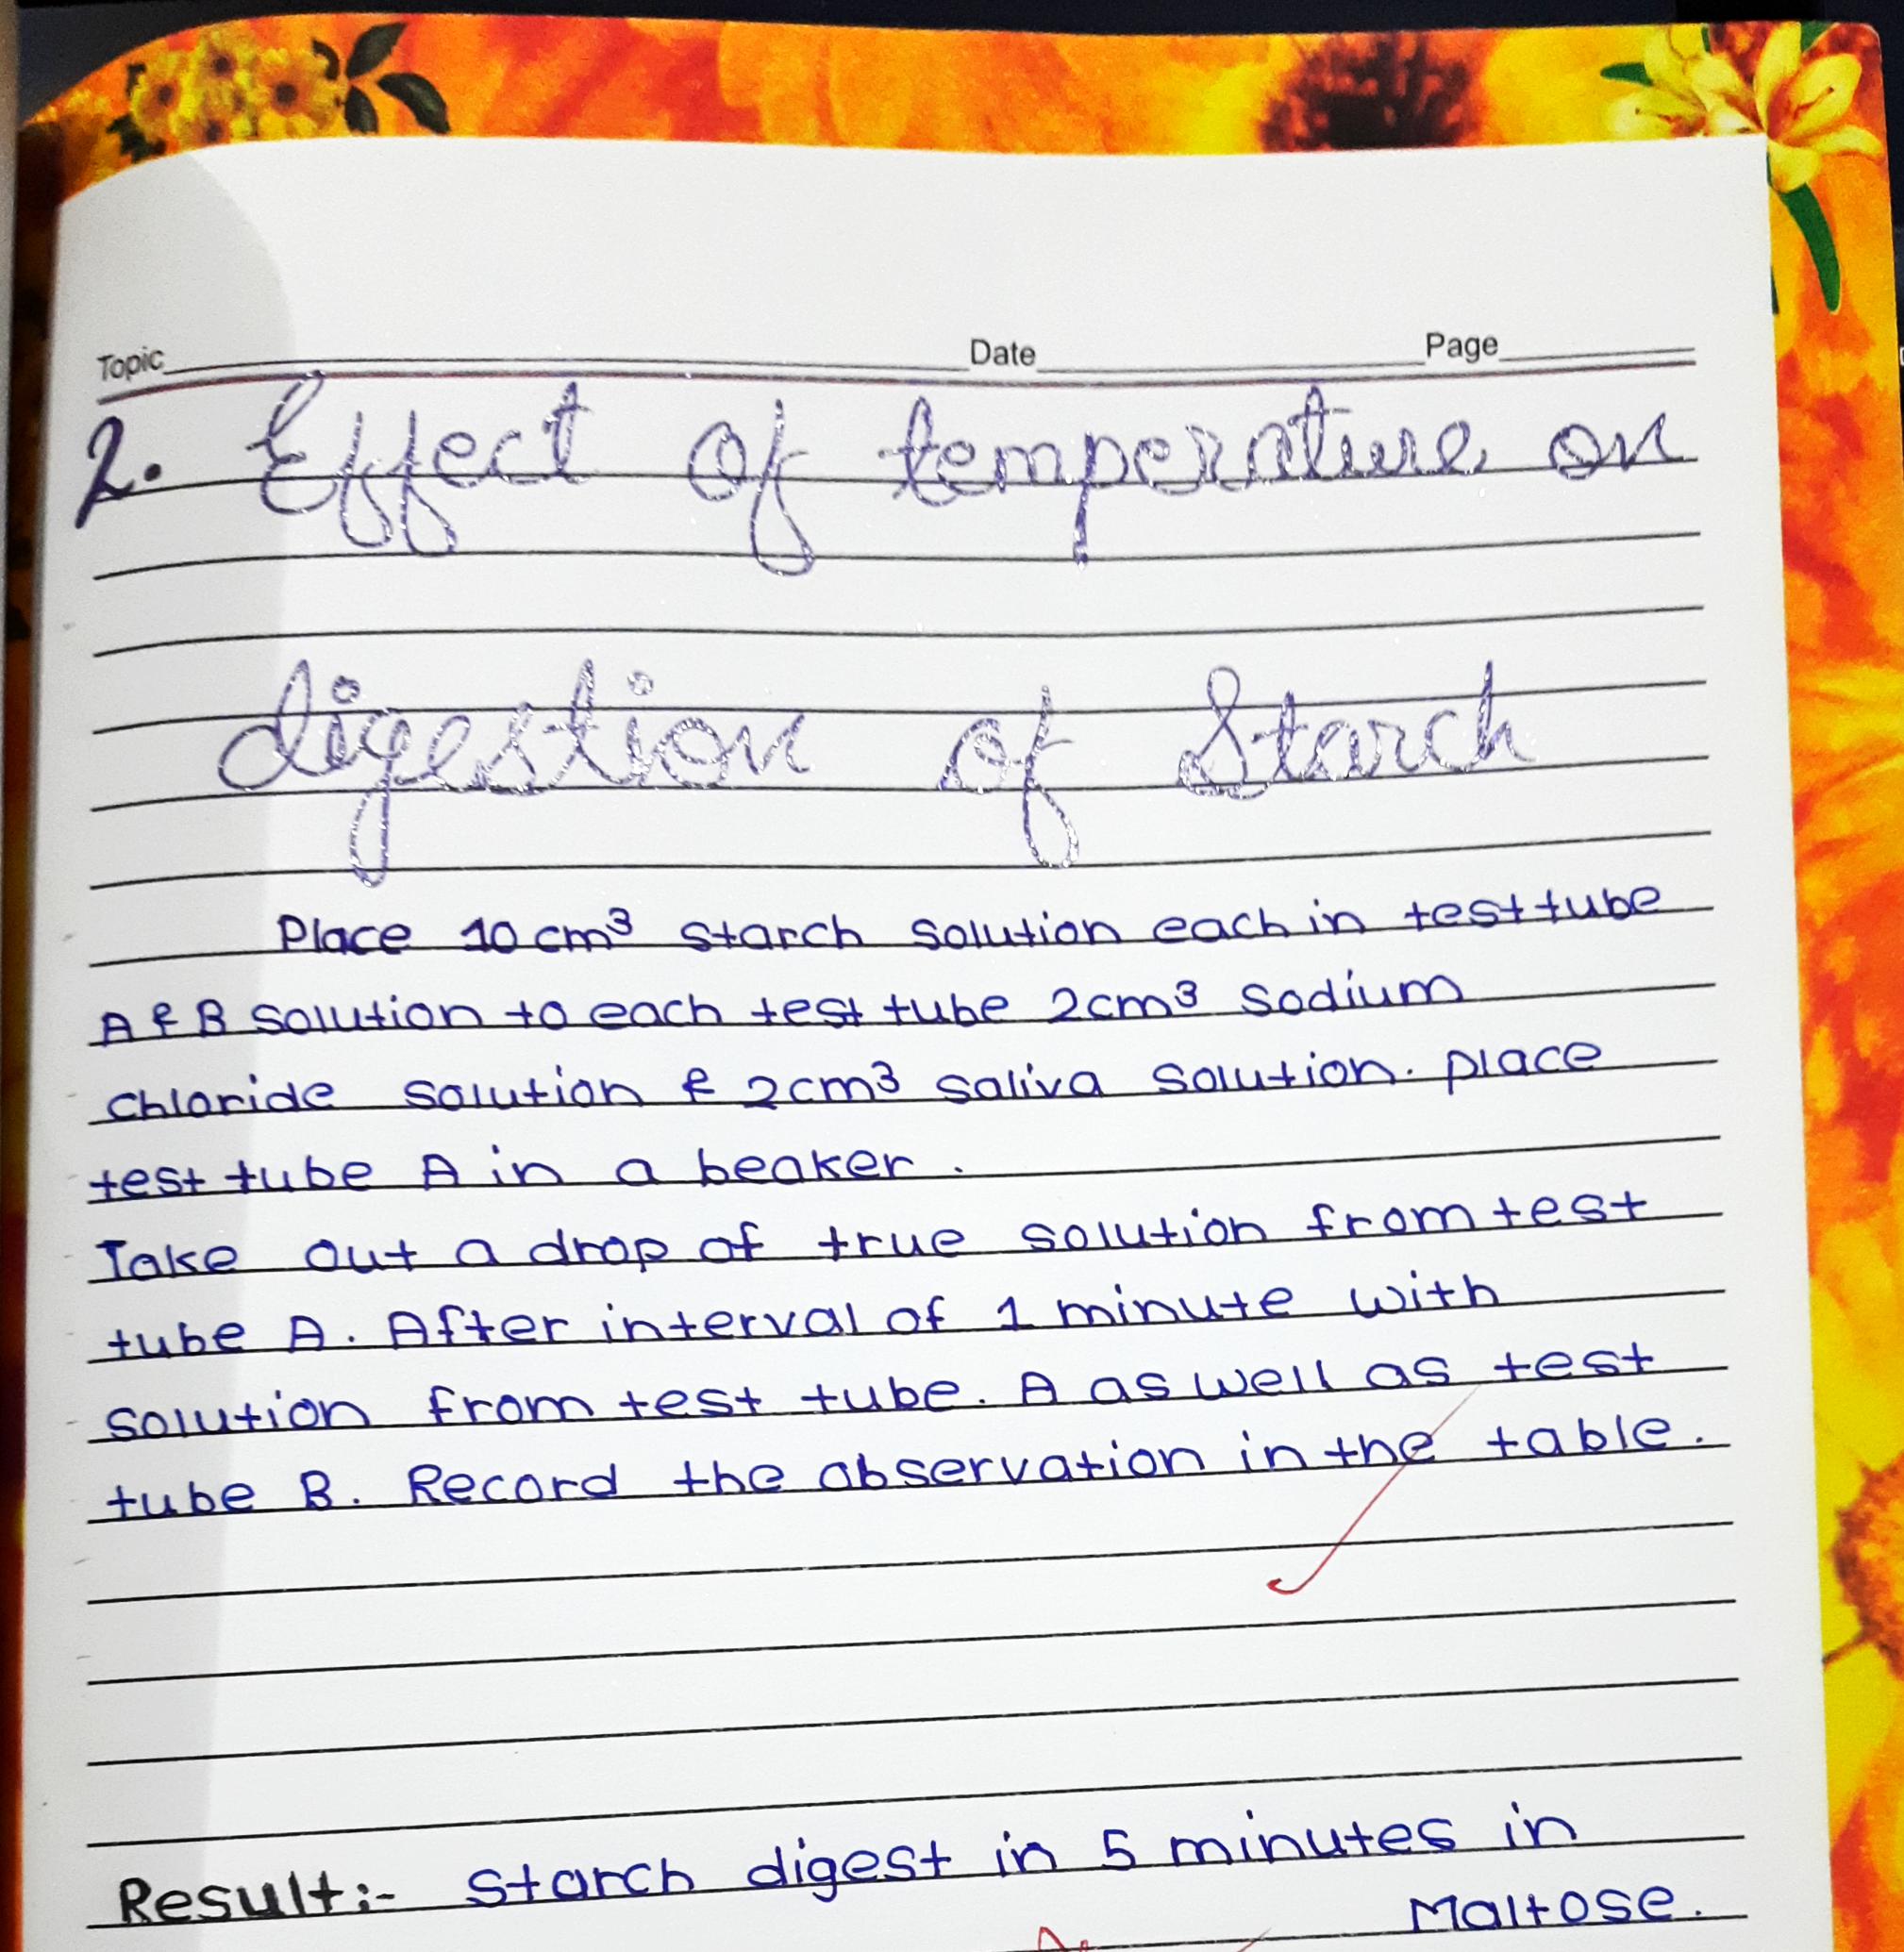 Topic Date Page
2. Effect of temperature on
digestion of Starch
Place 10 cm³ starch solution each in test tube
A & B solution to each test tube 2cm³ sodium
chloride solution & 2cm³ saliva solution. place
test tube A in a beaker.
Take out a drop of true solution from test
tube A. After interval of 1 minute with
solution from test tube. A as well as test
tube B. Record the observation in the table.
Result:- starch digest in 5 minutes in
Maltose.